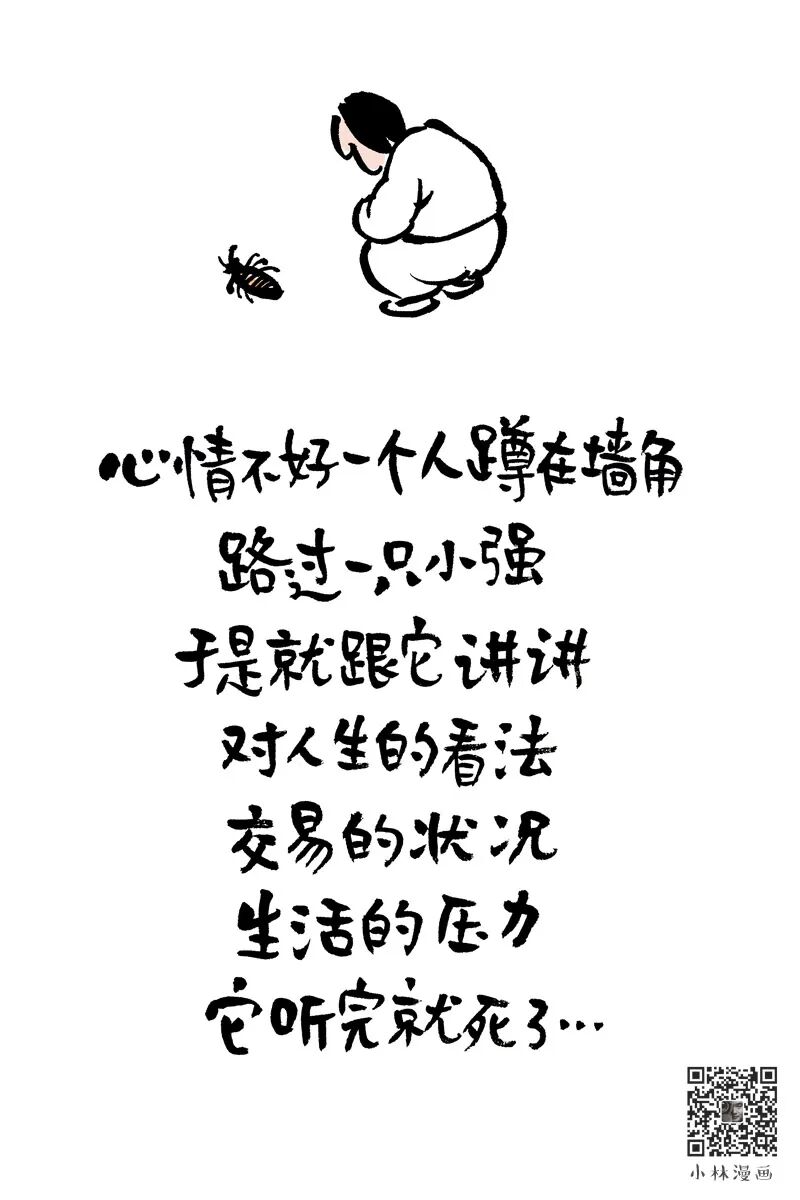 心情不好一个人蹲在墙角
路过一只小强
于是就跟它讲讲
对人生的看法
交易的状况
生活的压力
它听完就死了…
小林漫画